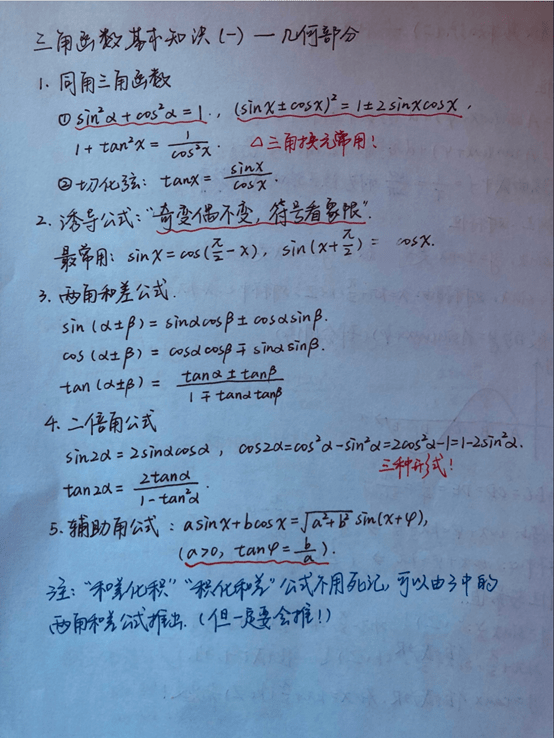 三角函数基本知识(一)—几何部分
1. 同角三角函数
① sin²α+cos²α=1., (sinx±cosx)²=1±2sinxcosx,
1+tan²x=1/cos²x. △三角换元常用!
②切化弦: tanx=sinx/cosx.
2. 诱导公式:"奇变偶不变,符号看象限".
最常用: sinx=cos(π/2-x), sin(x+π/2)= cosx.
3. 两角和差公式.
sin(α±β)=sinαcosβ±cosαsinβ.
cos(α±β)=cosαcosβ∓sinαsinβ.
tan(α±β)=tanα±tanβ/1∓tanαtanβ
4. 二倍角公式
sin2α=2sinαcosα, cos2α=cos²α-sin²α=2cos²α-1=1-2sin²α.
三种形式!
tan2α=2tanα/1-tan²α.
5. 辅助角公式: asinx+bcosx=√a²+b² sin(x+φ),
(a>0, tanφ=b/a).
注:"和差化积""积化和差"公式不用死记,可以由3中的
两角和差公式推出.(但一定要会推!)